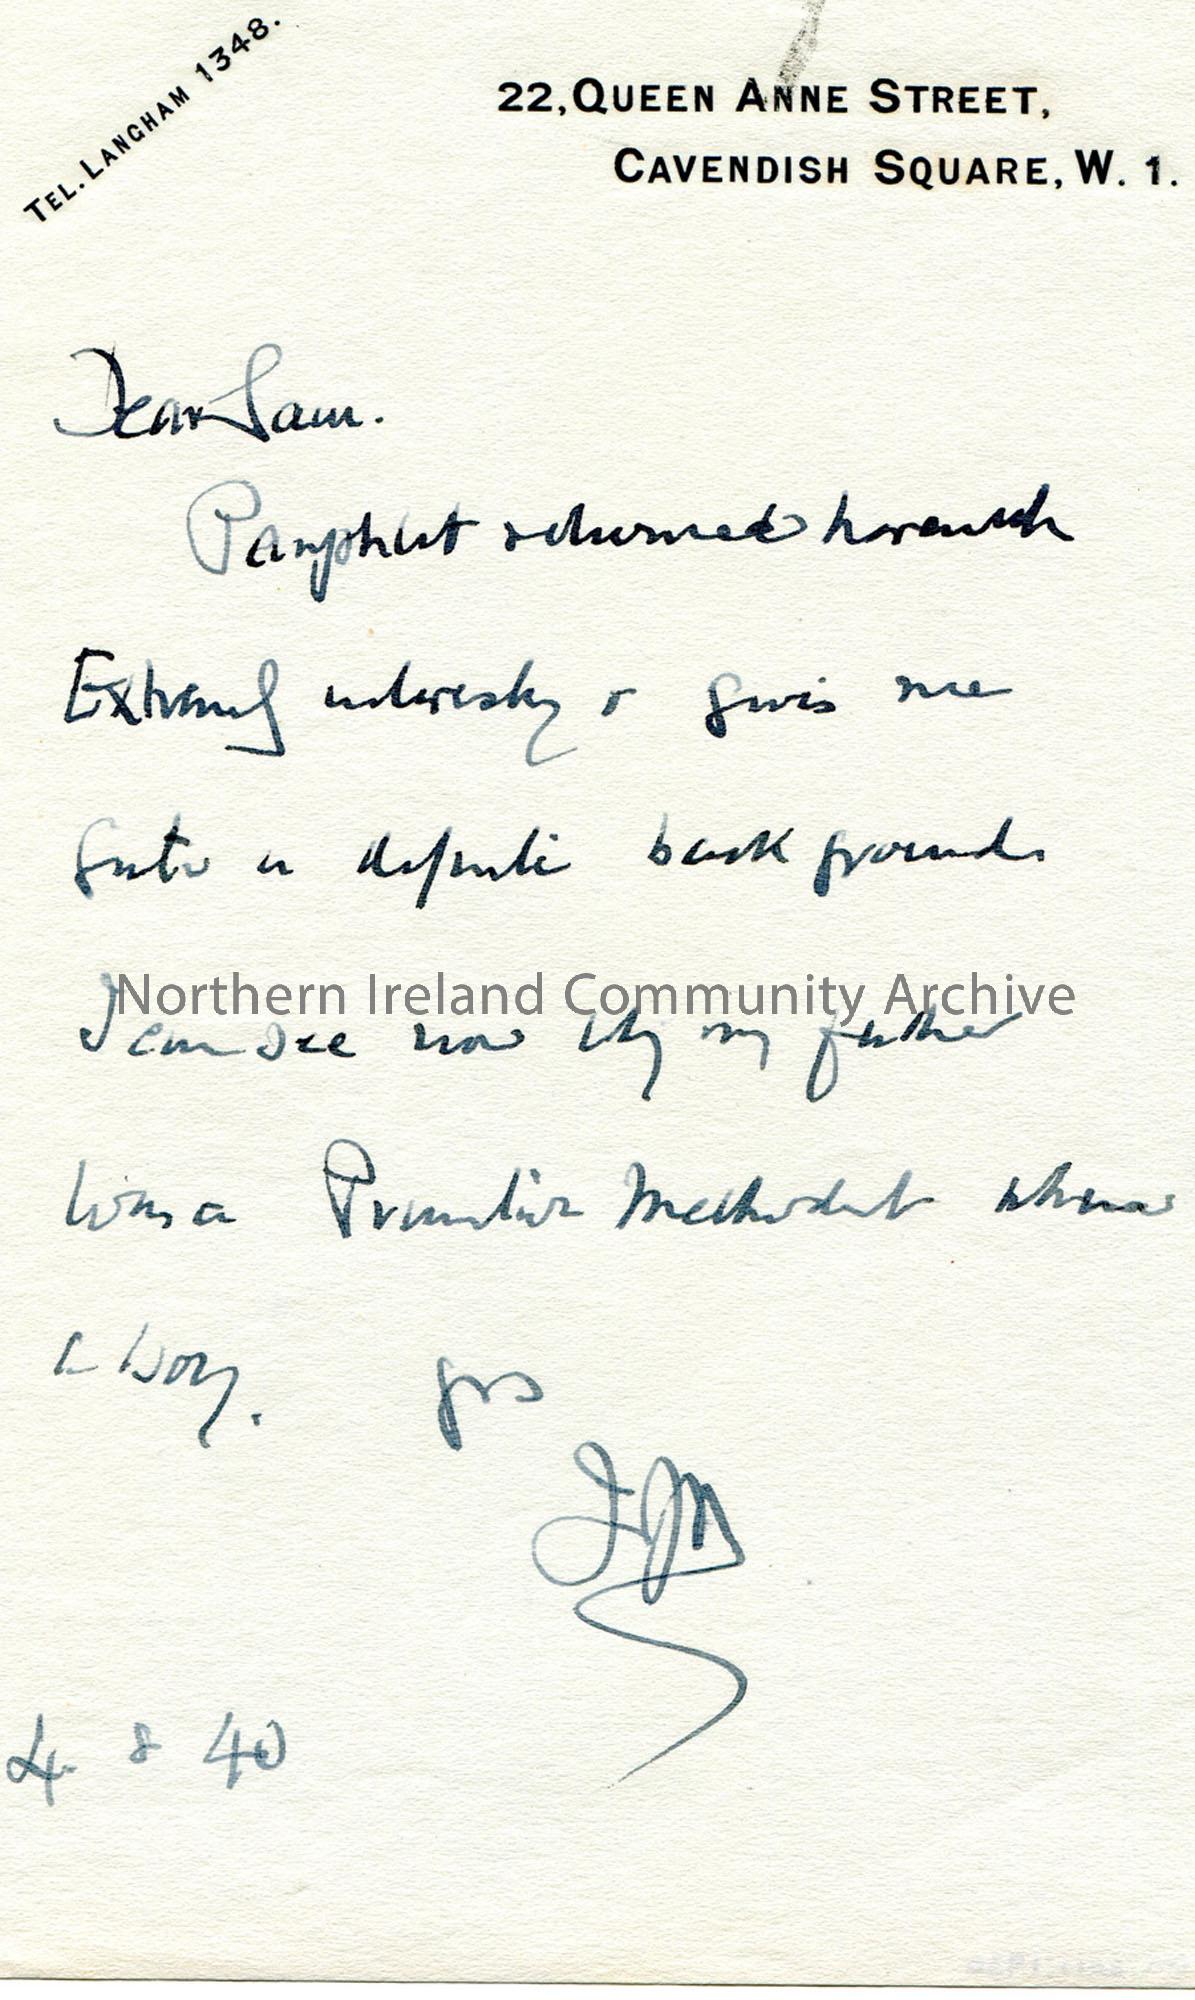 TEL. LANGHAM 1348.
22, QUEEN ANNE STREET,
CAVENDISH SQUARE, W. 1.
Dear Sam.
Pamphlet returned herewith
Extremely interesting & gives me
quite a definite back ground.
Northern Ireland Community Archive
I can see now why my father
was a Primitive Methodist when
a boy. yrs
4 8 40